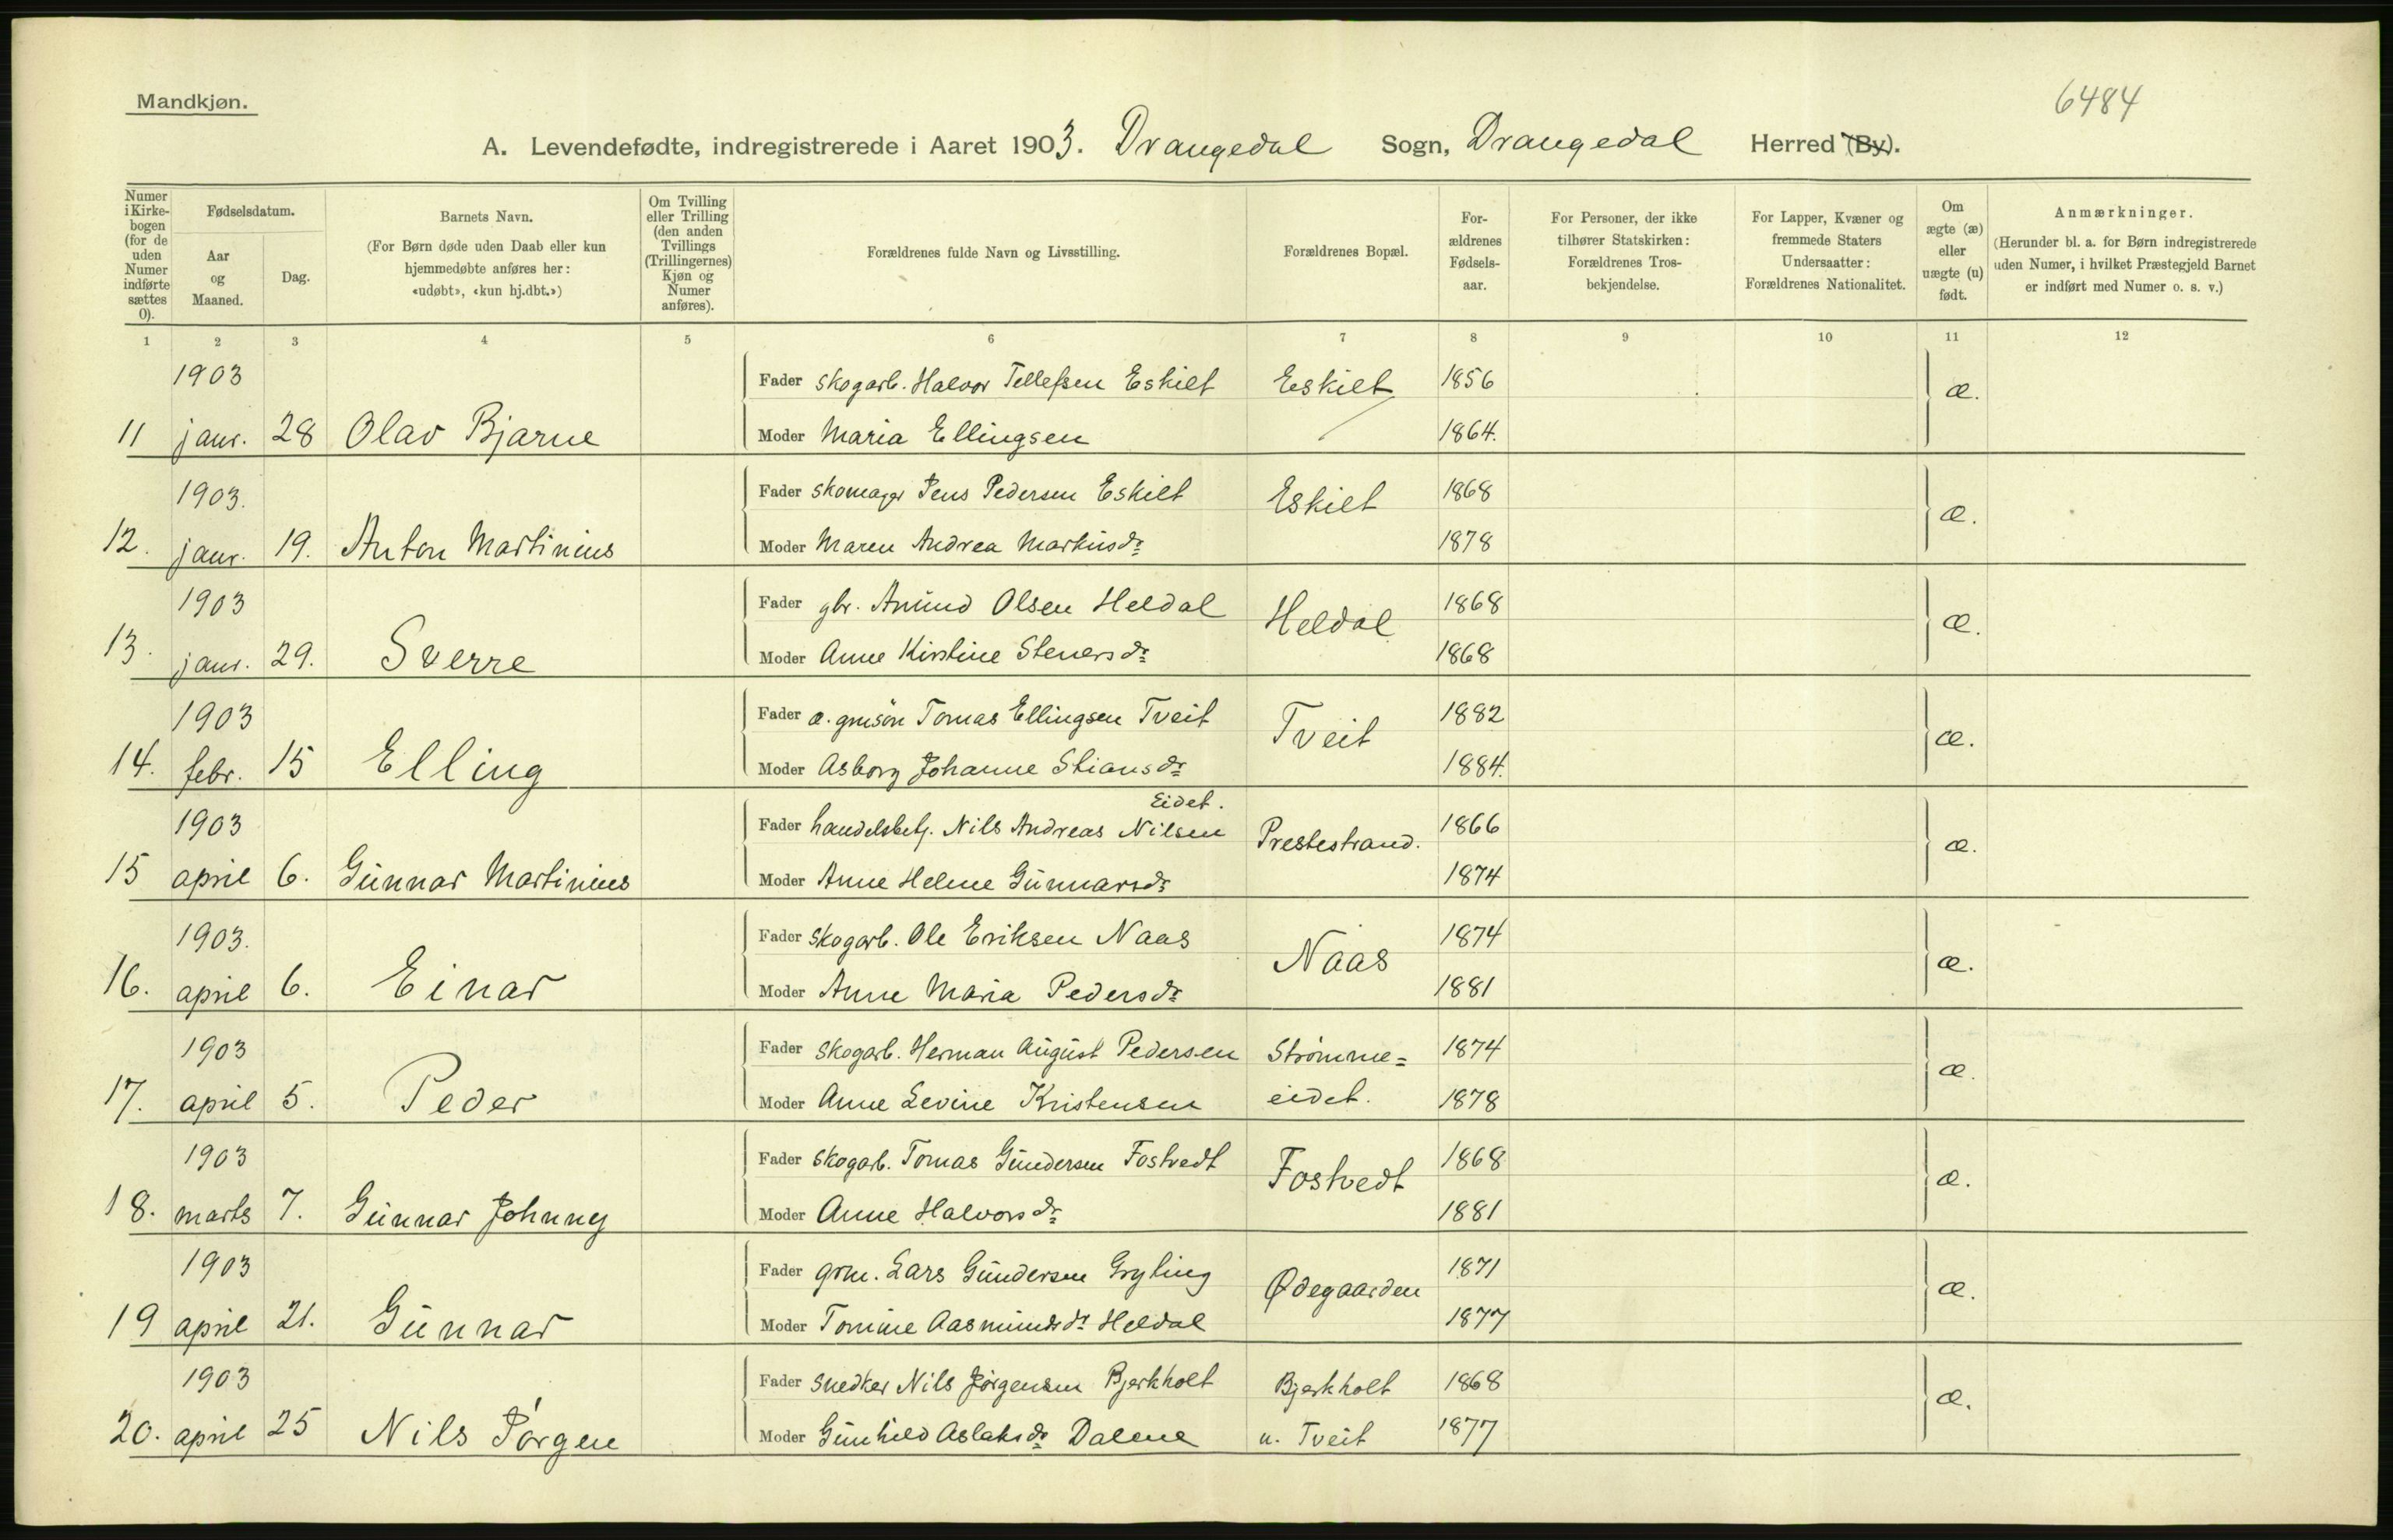 Mandkjøn.
6484
A. Levendefødte, indregistrerede i Aaret 1903. Drangedal Sogn, Drangedal Herred (By).
Numer i Kirke-bogen (for de uden Numer indførte sættes 0).
Fødselsdatum.
Aar og Maaned.
Dag.
Barnets Navn.
(For Børn døde uden Daab eller kun hjemmedøbte anføres her: «udøbt», «kun hj.dbt.»)
Om Tvilling eller Trilling (den anden Tvillings (Trillingernes) Kjøn og Numer anføres).
Forældrenes fulde Navn og Livsstilling.
Forældrenes Bopæl.
For-ældrenes Fødsels-aar.
For Personer, der ikke tilhører Statskirken: Forældrenes Tros-bekjendelse.
For Lapper, Kvæner og fremmede Staters Undersaatter: Forældrenes Nationalitet.
Om ægte (æ) eller uægte (u) født.
Anmærkninger.
(Herunder bl. a. for Børn indregistrerede uden Numer, i hvilket Præstegjeld Barnet er indført med Numer o. s. v.)
1 2 3 4 5 6 7 8 9 10 11 12
1903 Fader skogarb. Halvor Tellefsen Eskilt Eskilt 1856 æ.
11 janr. 28 Olav Bjarne Moder Maria Ellingsen 1864.
1903. Fader skomager Jens Pedersen Eskilt Eskilt 1868 æ.
12. janr. 19. Anton Martinius Moder Maren Andrea Markusdr 1878
1903 Fader gbr. Anund Olsen Heldal Heldal 1868 æ.
13. janr. 29. Sverre Moder Anne Kirstine Stenersdr 1868
1903 Fader a. gmsøn Tomas Ellingsen Tveit Tveit 1882 æ.
14. febr. 15 Elling Moder Asborg Johanne Stiansdr 1884.
Eidet.
1903 Fader handelsbetj. Nils Andreas Nilsen Prestestrand. 1866 æ.
15 april 6. Gunnar Martinius Moder Anne Helene Gunnarsdr 1874
1903. Fader skogarb. Ole Eriksen Naas Naas 1874 æ.
16. april 6. Einar Moder Anne Maria Pedersdr 1881
1903 Fader skogarb. Herman August Pedersen Strømme= 1874 æ.
17. april 5. Peder Moder Anne Levine Kristensen eidet. 1878
1903 Fader skogarb. Tomas Gundersen Fostvedt Fostvedt 1868 æ.
18. marts 7. Gunnar Johnny Moder Anne Halvorsdr 1881
1903 Fader grm. Lars Gundersen Gryting Ødegaarden 1871 æ.
19 april 21. Gunnar Moder Tomine Aasmundsdr Heldal 1877
1903 Fader snedker Nils Jørgensen Bjerkholt Bjerkholt 1868 æ.
20. april 25 Nils Jørgen Moder Gunhild Aslaksdr Dalene u. Tveit 1877